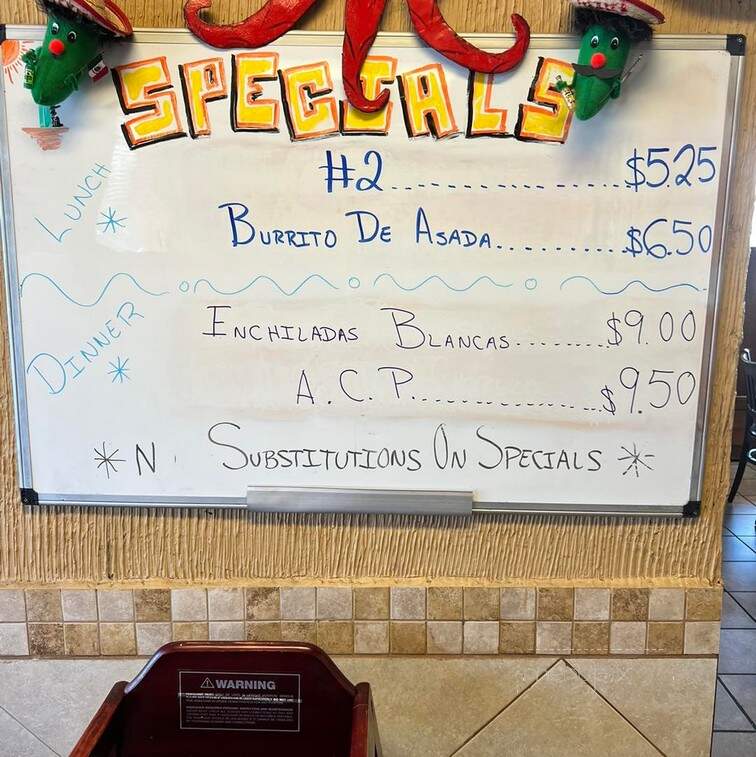 SPECIALS
LUNCH *
#2.................$5.25
BURRITO DE ASADA..........$6.50
DINNER *
ENCHILADAS BLANCAS........$9.00
A.C.P.................$9.50
* N SUBSTITUTIONS ON SPECIALS *
WARNING